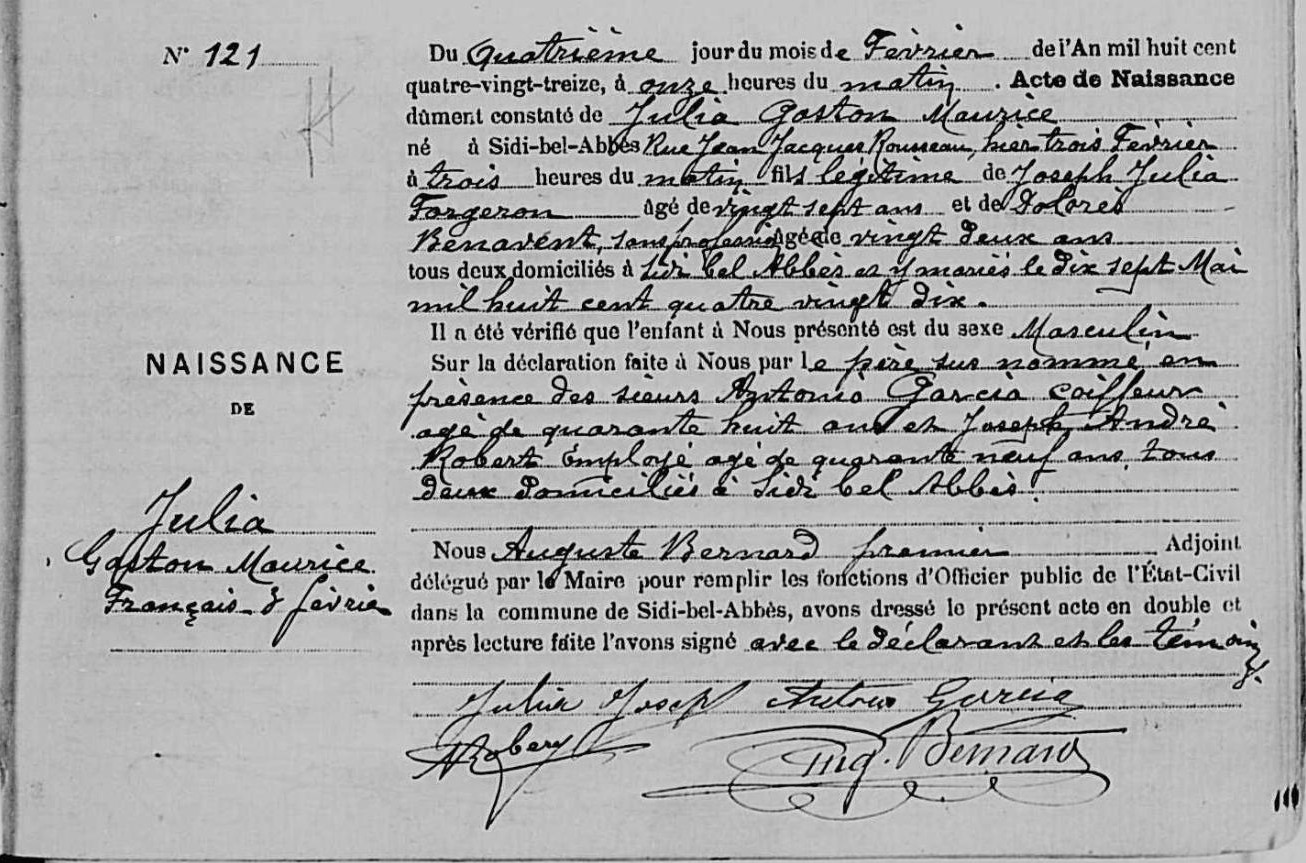 N° 121
Du Quatrième jour du mois de Fèvrier de l'An mil huit cent
quatre-vingt-treize, à onze heures du matin. Acte de Naissance
dûment constaté de Julia Gaston Maurice
né à Sidi-bel-Abbès Rue Jean Jacques Rousseau, hier trois Fèvrier
à trois heures du matin fils légitime de Joseph Julia
Forgeron âgé de vingt sept ans et de Dolorès
Bénavent, sans profession âgée de vingt deux ans
tous deux domiciliés à Sidi bel Abbès et y mariés le dix sept Mai
mil huit cent quatre vingt dix.
Il a été vérifié que l'enfant à Nous présenté est du sexe Masculin
Sur la déclaration faite à Nous par le père sus nommé, en
présence des sieurs Antonio Garcia coiffeur
agé de quarante huit ans et Joseph André
Robert Employé agé de quarante neuf ans, tous
deux domiciliés à Sidi bel Abbès.
NAISSANCE
DE
Julia
Gaston Maurice
Français 3 février
Nous Auguste Bernard premier Adjoint
délégué par le Maire pour remplir les fonctions d'Officier public de l'État-Civil
dans la commune de Sidi-bel-Abbès, avons dressé le présent acte en double et
après lecture faite l'avons signé avec le déclarant et les témoins.
Julia Joseph Antonio Garcia
Robert Aug. Bernard